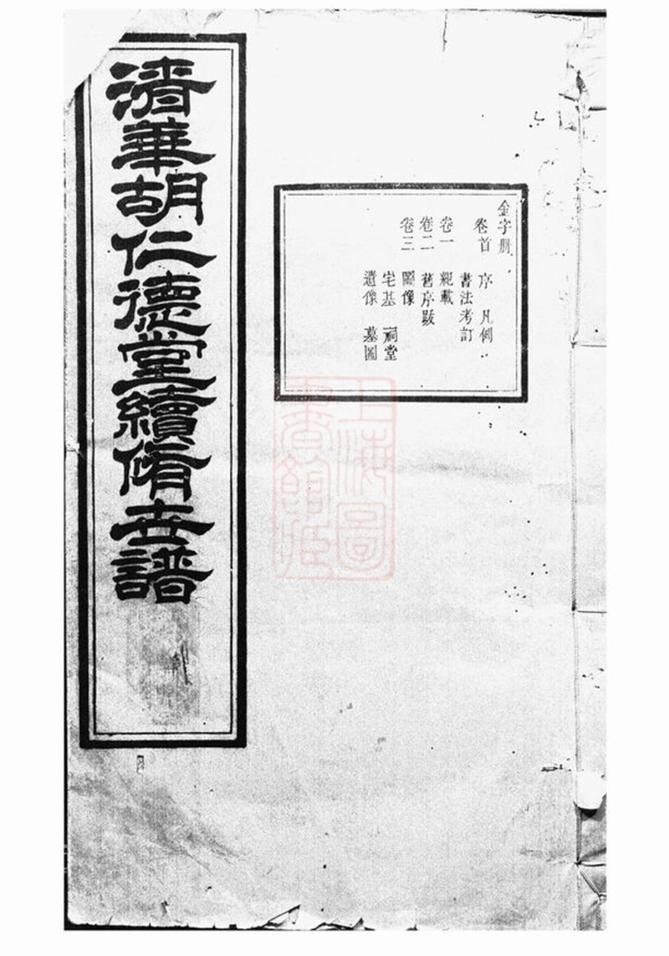 清華胡仁德堂續修世譜
金字册
卷首 序 凡例
書法考訂
卷一 䂓載
卷二 舊序跋
卷三 圖像
宅基 祠堂
遺像 墓圖
上海圖
書館藏